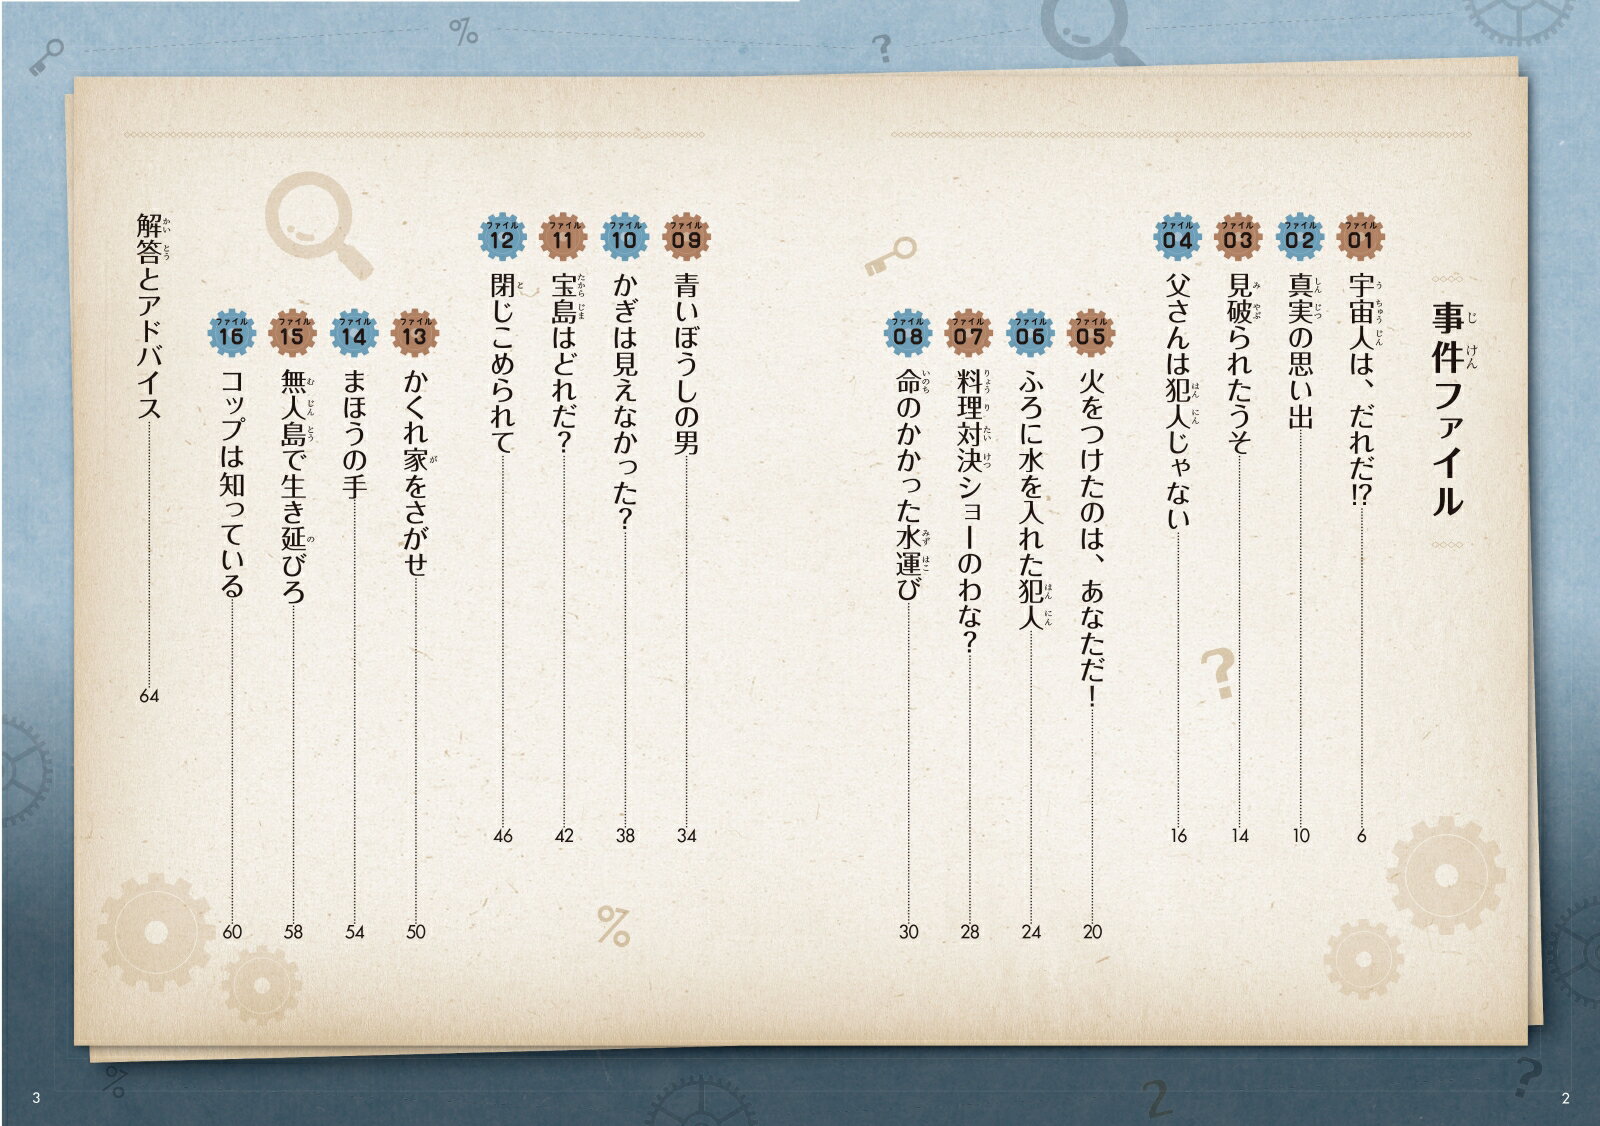 事件ファイル
ファイル01 宇宙人は、だれだ!? 6
ファイル02 真実の思い出 10
ファイル03 見破られたうそ 14
ファイル04 父さんは犯人じゃない 16
ファイル05 火をつけたのは、あなただ! 20
ファイル06 ふろに水を入れた犯人 24
ファイル07 料理対決ショーのわな? 28
ファイル08 命のかかった水運び 30
ファイル09 青いぼうしの男 34
ファイル10 かぎは見えなかった? 38
ファイル11 宝島はどれだ? 42
ファイル12 閉じこめられて 46
ファイル13 かくれ家をさがせ 50
ファイル14 まほうの手 54
ファイル15 無人島で生き延びろ 58
ファイル16 コップは知っている 60
解答とアドバイス 64
2
3